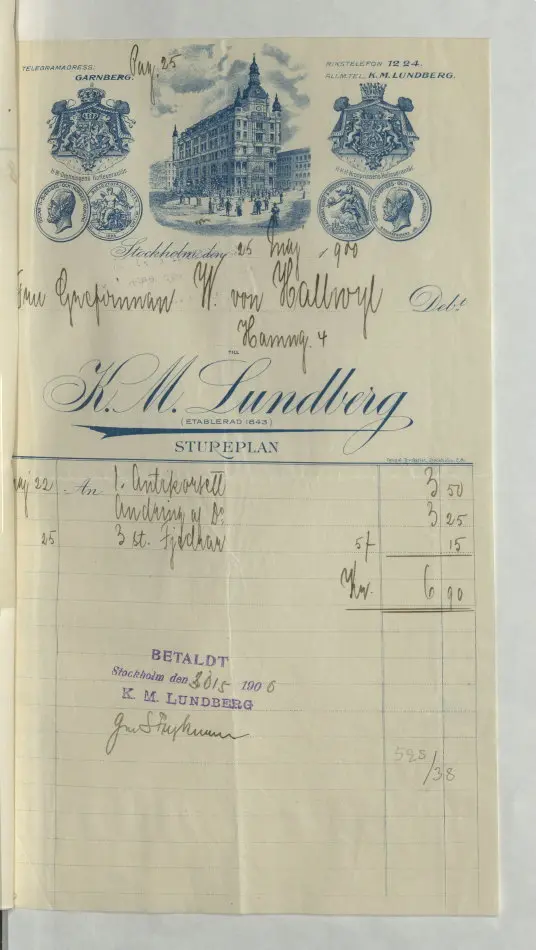 TELEGRAMADRESS:
GARNBERG.
Pag. 25
RIKSTELEFON 1224.
ALLM.TEL. K.M. LUNDBERG.
Stockholm den 25 Maj 1900
Fru Grefvinnan W. von Hallwyl Debt
Hamng. 4
TILL
K. M. Lundberg
(ETABLERAD 1843)
STUREPLAN
Maj 22 An 1. Antikorsett 3 50
Ändring af Do 3 25
25 3 st. Fjedrar 5/ 15
Kr. 6 90
BETALDT
Stockholm den 30/5 1900
K. M. LUNDBERG
528/38